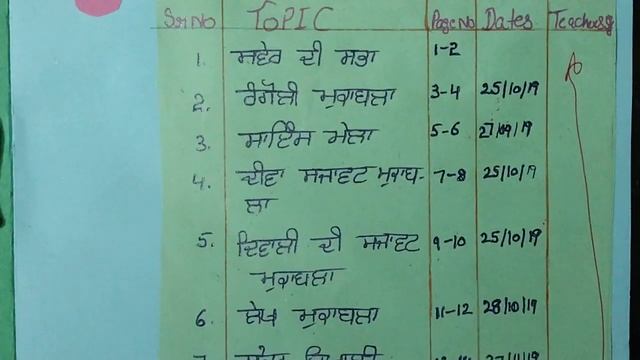 Sr No TOPIC Page No Dates
1. ਸਵੇਰ ਦੀ ਸਭਾ 1-2
2. ਰੰਗੋਲੀ ਮੁਕਾਬਲਾ 3-4 25/10/19
3. ਸਾਇੰਸ ਮੇਲਾ 5-6 27/09/19
4. ਦੀਵਾ ਸਜਾਵਟ ਮੁਕਾਬ- 7-8 25/10/19
ਲਾ
5. ਦਿਵਾਲੀ ਦੀ ਸਜਾਵਟ 9-10 25/10/19
ਮੁਕਾਬਲਾ
6. ਲੇਖ ਮੁਕਾਬਲਾ 11-12 28/10/19